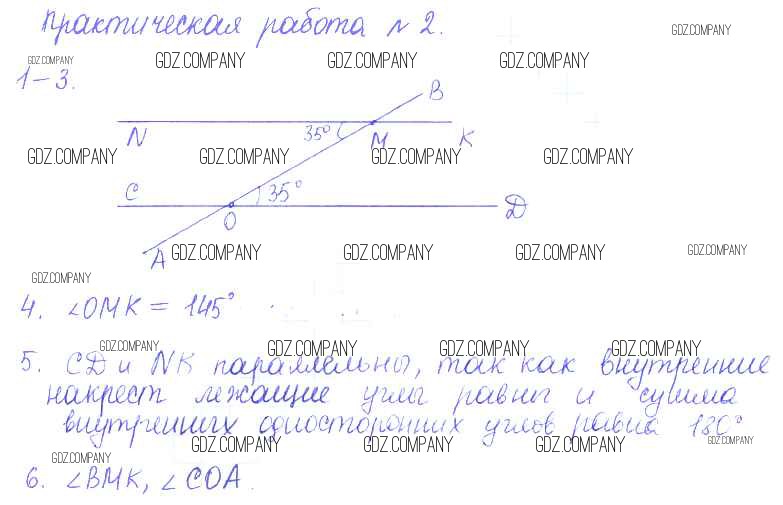 Практическая работа №2.
GDZ.COMPANY
GDZ.COMPANY GDZ.COMPANY GDZ.COMPANY GDZ.COMPANY
1-3.
B
35° N M K
GDZ.COMPANY GDZ.COMPANY GDZ.COMPANY GDZ.COMPANY
C 35° D
O
A GDZ.COMPANY GDZ.COMPANY GDZ.COMPANY GDZ.COMPANY
GDZ.COMPANY
4. ∠OMK = 145°
GDZ.COMPANY GDZ.COMPANY GDZ.COMPANY GDZ.COMPANY
5. CD и NK параллельны, так как внутренние
накрест лежащие углы равны и сумма
внутренних односторонних углов равна 180°
GDZ.COMPANY GDZ.COMPANY GDZ.COMPANY GDZ.COMPANY
GDZ.COMPANY
6. ∠BMK, ∠COA.